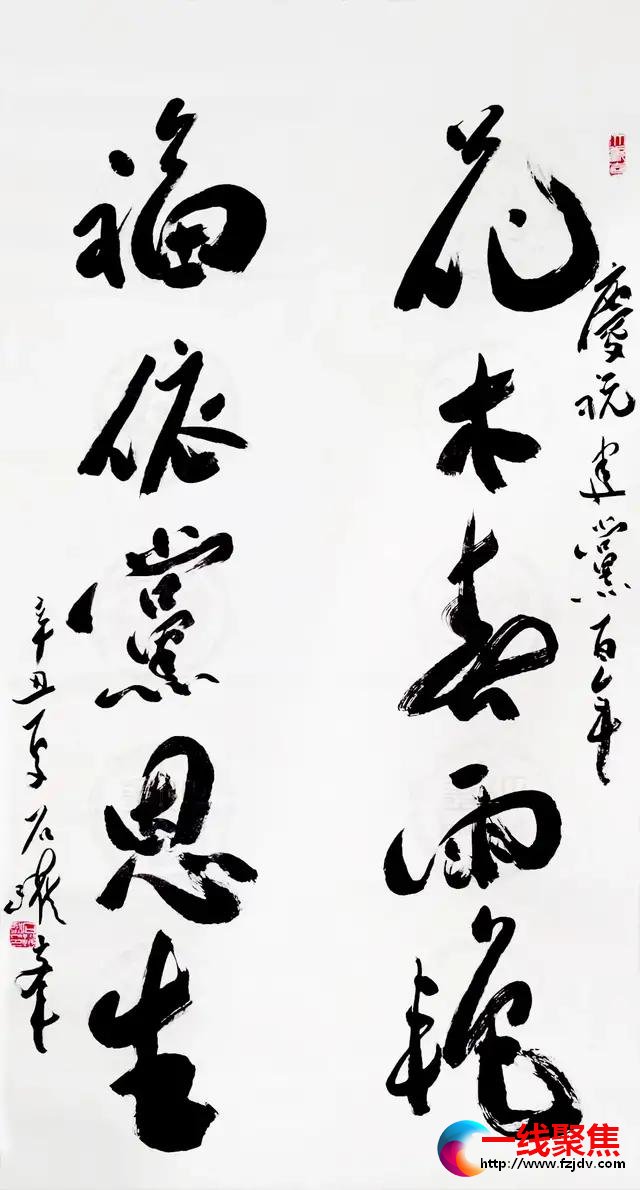 慶祝建黨百年
花木春雨艳
福依黨恩生
辛丑夏石
一线聚焦
http://www.fzjdv.com